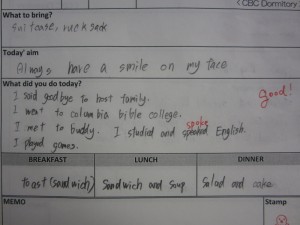 <CBC Dormitory
What to bring?
Suitcase, rucksack
Today' aim
Always have a smile on my face
What did you do today?
Good!
I said goodbye to host family.
I went to columbia bible college.
spoke
I met to buddy. I studied and speaked English.
I played games.
BREAKFAST LUNCH DINNER
toast (sandwich) Sandwich and soup Salad and cake
MEMO Stamp